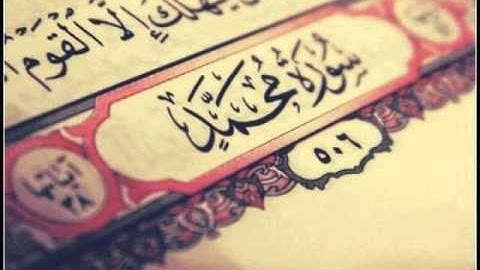 يهلك إلا القوم
سورة محمد
آياتها
٣٨
٥٠٦